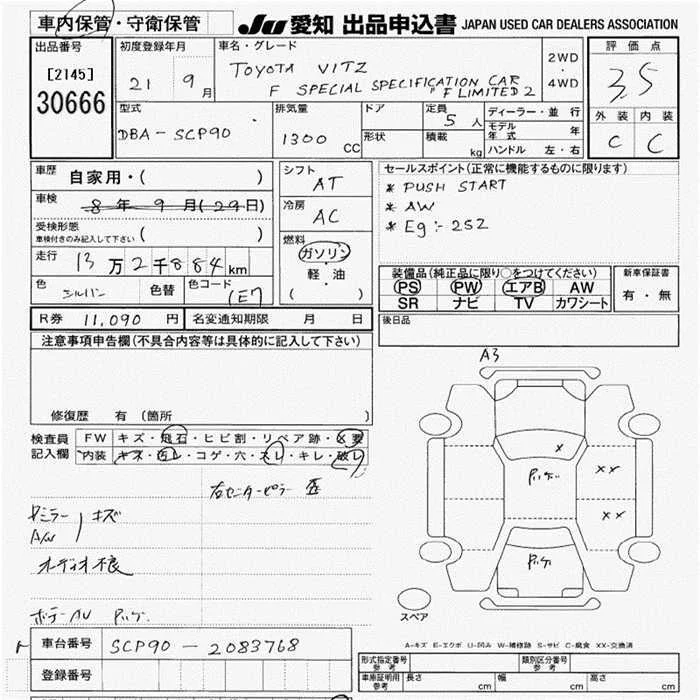 車内保管・守衛保管 JU 愛知 出品申込書 JAPAN USED CAR DEALERS ASSOCIATION
出品番号
[2145]
30666
初度登録年月
21 9月
車名・グレード
TOYOTA VITZ
F SPECIAL SPECIFICATION CAR "F LIMITED 2
2WD
・
4WD
評価点
3.5
外装 内装
C C
型式
DBA-SCP90
排気量
1300 CC
ドア
形状
定員 5 人
積載 kg
ディーラー・並行
モデル年式 年
ハンドル 左・右
車歴 自家用・( )
車検 8年 9月(29日)
受検形態
車検付きのみ記入して下さい ( )
走行 13万2千884km
色 シルバー 色替 色コード 1E7
シフト
AT
冷房
AC
燃料
ガソリン
・
軽・油
( )
セールスポイント(正常に機能するものに限ります)
* PUSH START
* AW
* Eg:-2SZ
装備品(純正品に限り○をつけてください)
PS PW エアB AW
SR ナビ TV カワシート
新車保証書
有・無
R券 11,090 円 名変通知期限 月 日
後日品
注意事項申告欄(不具合内容等は具体的に記入して下さい)
修復歴 有(箇所 )
検査員
記入欄
FW キズ・飛石・ヒビ割・リペア跡・X要
内装 キズ・汚レ・コゲ・穴・スレ・キレ・破レ
右センターピラー 歪
ミラー キズ
A/W
オーディオ不良
A3
X
XX
XX
スペア
A-キズ E-エクボ U-凹み W-補修跡 S-サビ C-腐食 XX-交換済
車台番号 SCP90-2083768
登録番号
形式指定番号
参考
類別区分番号
参考
車庫証明用
参考
長さ cm 幅 cm 高さ cm